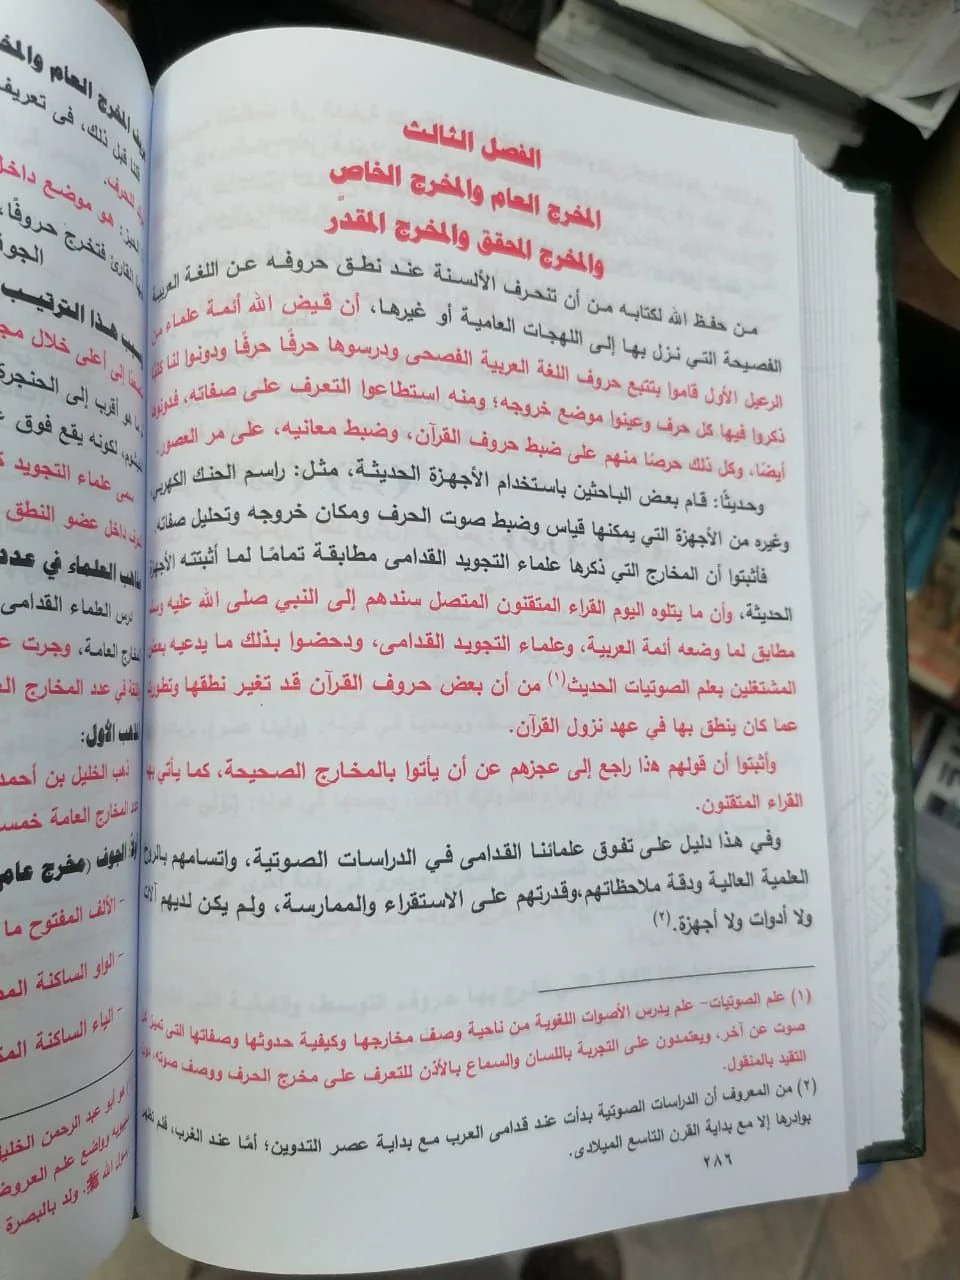 الفصل الثالث
المخرج العام والمخرج الخاص
والمخرج المحقق والمخرج المقدر
من حفظ الله لكتابه من أن تنحرف الألسنة عند نطق حروفه عن اللغة العربية
الفصيحة التي نزل بها إلى اللهجات العامية أو غيرها، أن قيض الله أئمة علماء من
الرعيل الأول قاموا بتتبع حروف اللغة العربية الفصحى ودرسوها حرفًا حرفًا ودونوا لنا
ذكروا فيها كل حرف وعينوا موضع خروجه؛ ومنه استطاعوا التعرف على صفاته، فدونوها
أيضًا، وكل ذلك حرصًا منهم على ضبط حروف القرآن، وضبط معانيه، على مر العصور.
وحديثًا: قام بعض الباحثين باستخدام الأجهزة الحديثة، مثل: راسم الحنك الكهربي
وغيره من الأجهزة التي يمكنها قياس وضبط صوت الحرف ومكان خروجه وتحليل صفاته
فأثبتوا أن المخارج التي ذكرها علماء التجويد القدامى مطابقة تمامًا لما أثبتته الأجهزة
الحديثة، وأن ما يتلوه اليوم القراء المتقنون المتصل سندهم إلى النبي صلى الله عليه وسلم
مطابق لما وضعه أئمة العربية، وعلماء التجويد القدامى، ودحضوا بذلك ما يدعيه بعض
المشتغلين بعلم الصوتيات الحديث(١) من أن بعض حروف القرآن قد تغير نطقها وتطورت
عما كان ينطق بها في عهد نزول القرآن.
وأثبتوا أن قولهم هذا راجع إلى عجزهم عن أن يأتوا بالمخارج الصحيحة، كما يأتي بها
القراء المتقنون.
وفي هذا دليل على تفوق علمائنا القدامى في الدراسات الصوتية، واتسامهم بالروح
العلمية العالية ودقة ملاحظاتهم،وقدرتهم على الاستقراء والممارسة، ولم يكن لديهم آلات
ولا أدوات ولا أجهزة.(٢)
(١) علم الصوتيات- علم يدرس الأصوات اللغوية من ناحية وصف مخارجها وكيفية حدوثها وصفاتها التى تميز
صوت عن آخر، ويعتمدون على التجربة باللسان والسماع بالأذن للتعرف على مخرج الحرف ووصف صوته،
التقيد بالمنقول.
(٢) من المعروف أن الدراسات الصوتية بدأت عند قدامى العرب مع بداية عصر التدوين؛ أمَّا عند الغرب، فلم تظهر
بوادرها إلا مع بداية القرن التاسع الميلادى.
٢٨٦
المخرج العام
قلنا قبل ذلك، فى تعريف
الحرف.
الحيز: هو موضع داخل
القارئ فتخرج حروفًا،
الجوف
هذا الترتيب
إلى أعلى خلال
ما هو أقرب إلى الحنجرة
لكونه يقع فوق
سمى علماء التجويد
داخل عضو النطق
العلماء في عدد
درس العلماء القدامى
المخارج العامة، وجرت
فى عدد المخارج
الأول:
ذهب الخليل بن أحمد
عدد المخارج العامة
الجوف (مخرج عام
- الألف المفتوح ما
- الواو الساكنة
- الياء الساكنة
هو أبو عبد الرحمن الخليل
وواضع علم العروض
رسول الله ﷺ. ولد بالبصرة